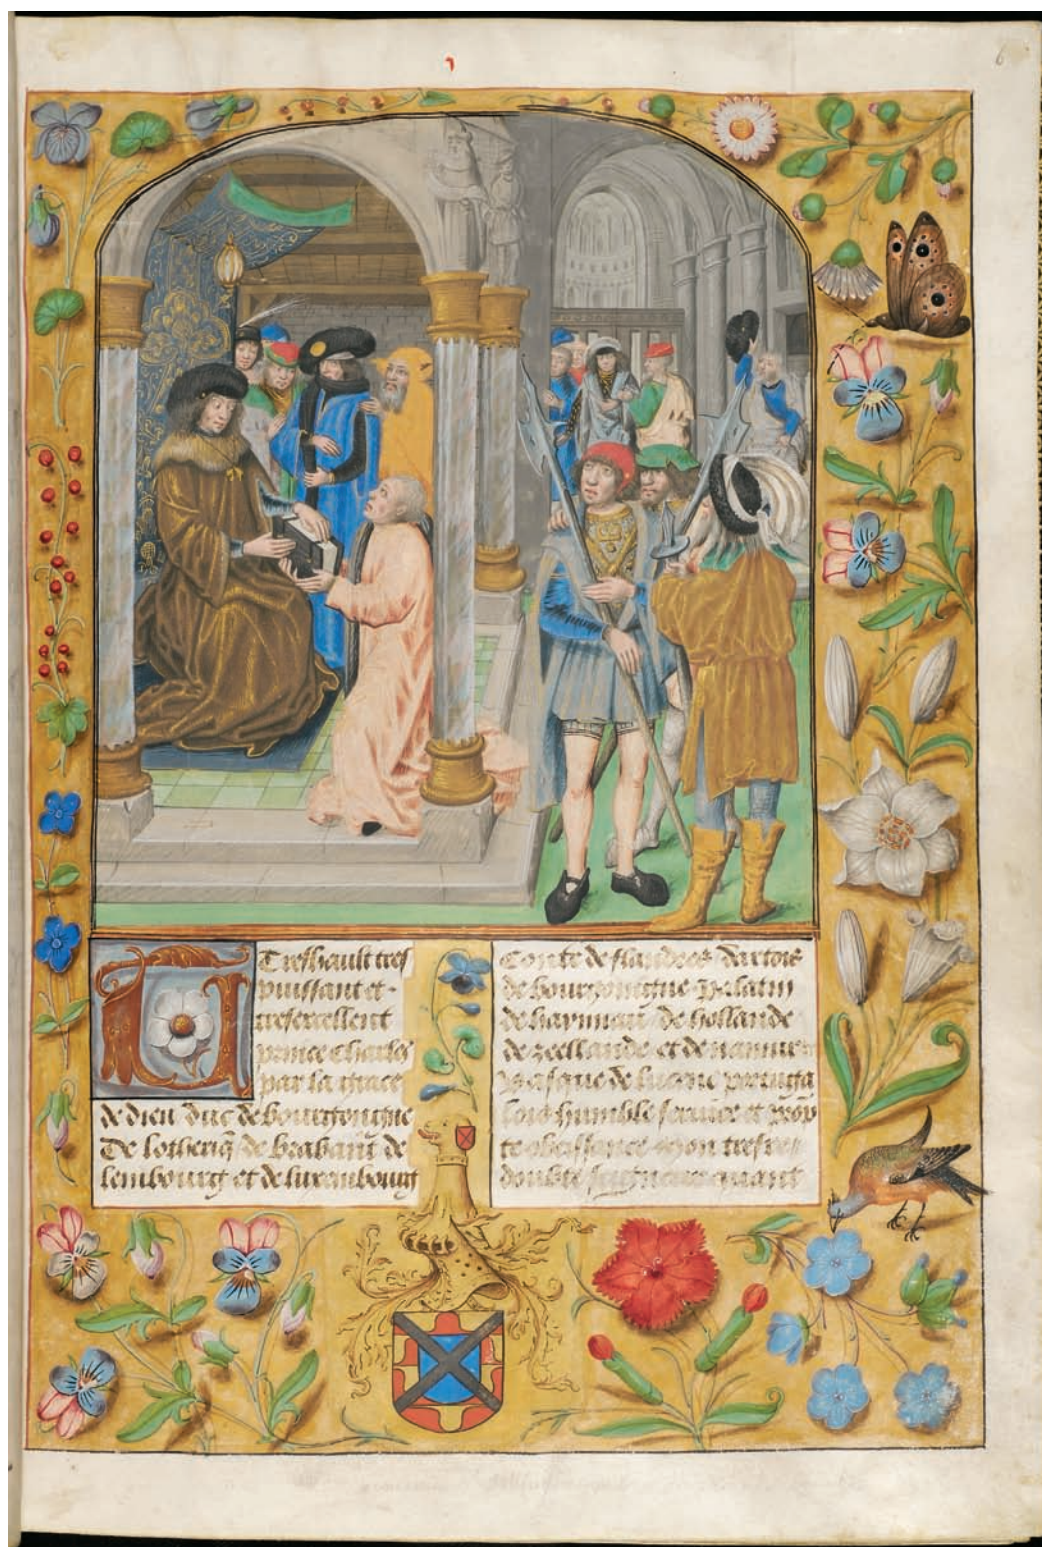 6
Treshault tres
puissant et
tresexcellent
prince Charles
par la grace
de dieu duc de bourgongne
De lotheriq̄ de brabant̄ de
lembourg et de luxembourg
Conte de flandres dartois
de bourgongne Palatin
de haynnau de hollande
de zeellande et de namur
Vasque de lucene portuga
lois humble service et prop
te obeissance Mon tresre
doubte seigneur quant